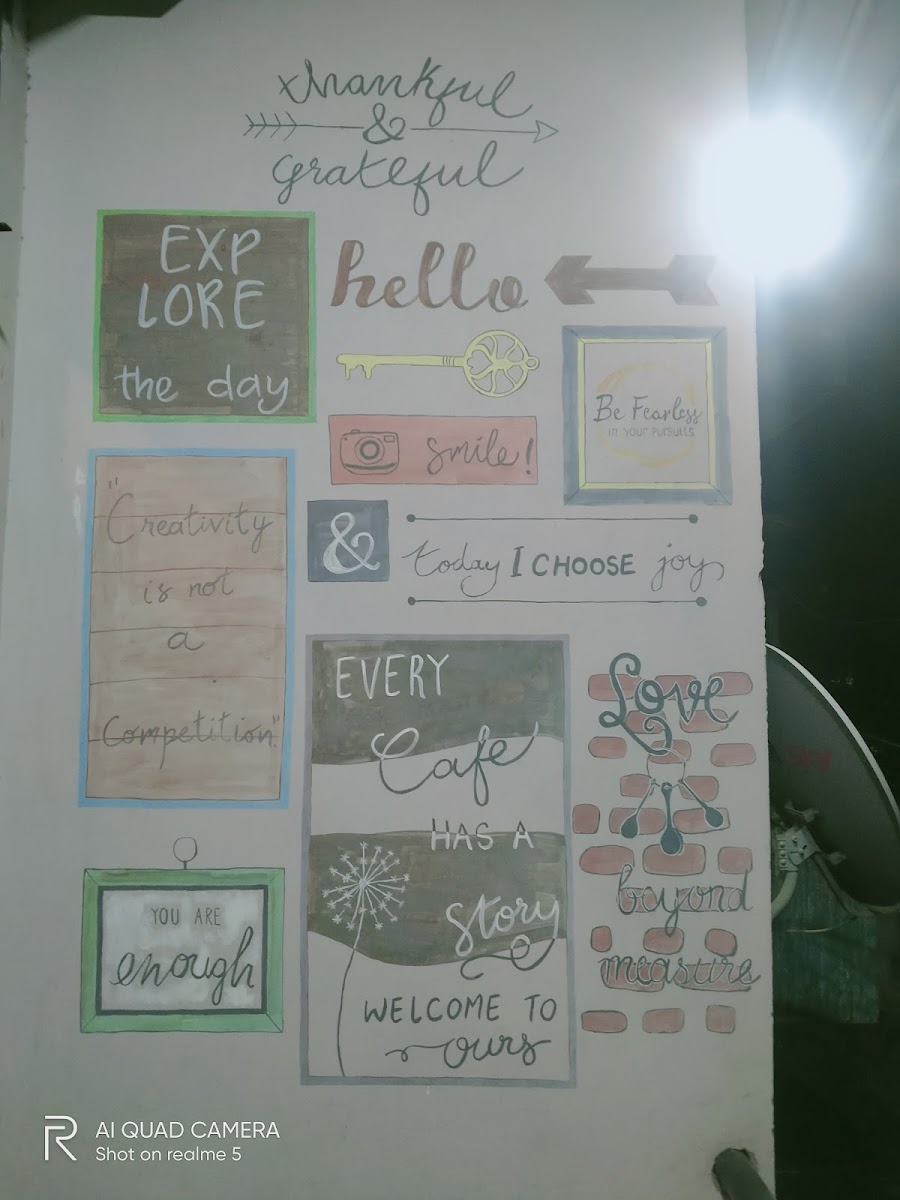 thankful
&
grateful
EXP
LORE
the day
hello
Be Fearless
IN YOUR PURSUITS
smile!
"Creativity
is not
a
Competition"
&
today I CHOOSE joy
EVERY
Cafe
HAS A
Story
WELCOME TO
ours
Love
beyond
measure
YOU ARE
enough
AI QUAD CAMERA
Shot on realme 5